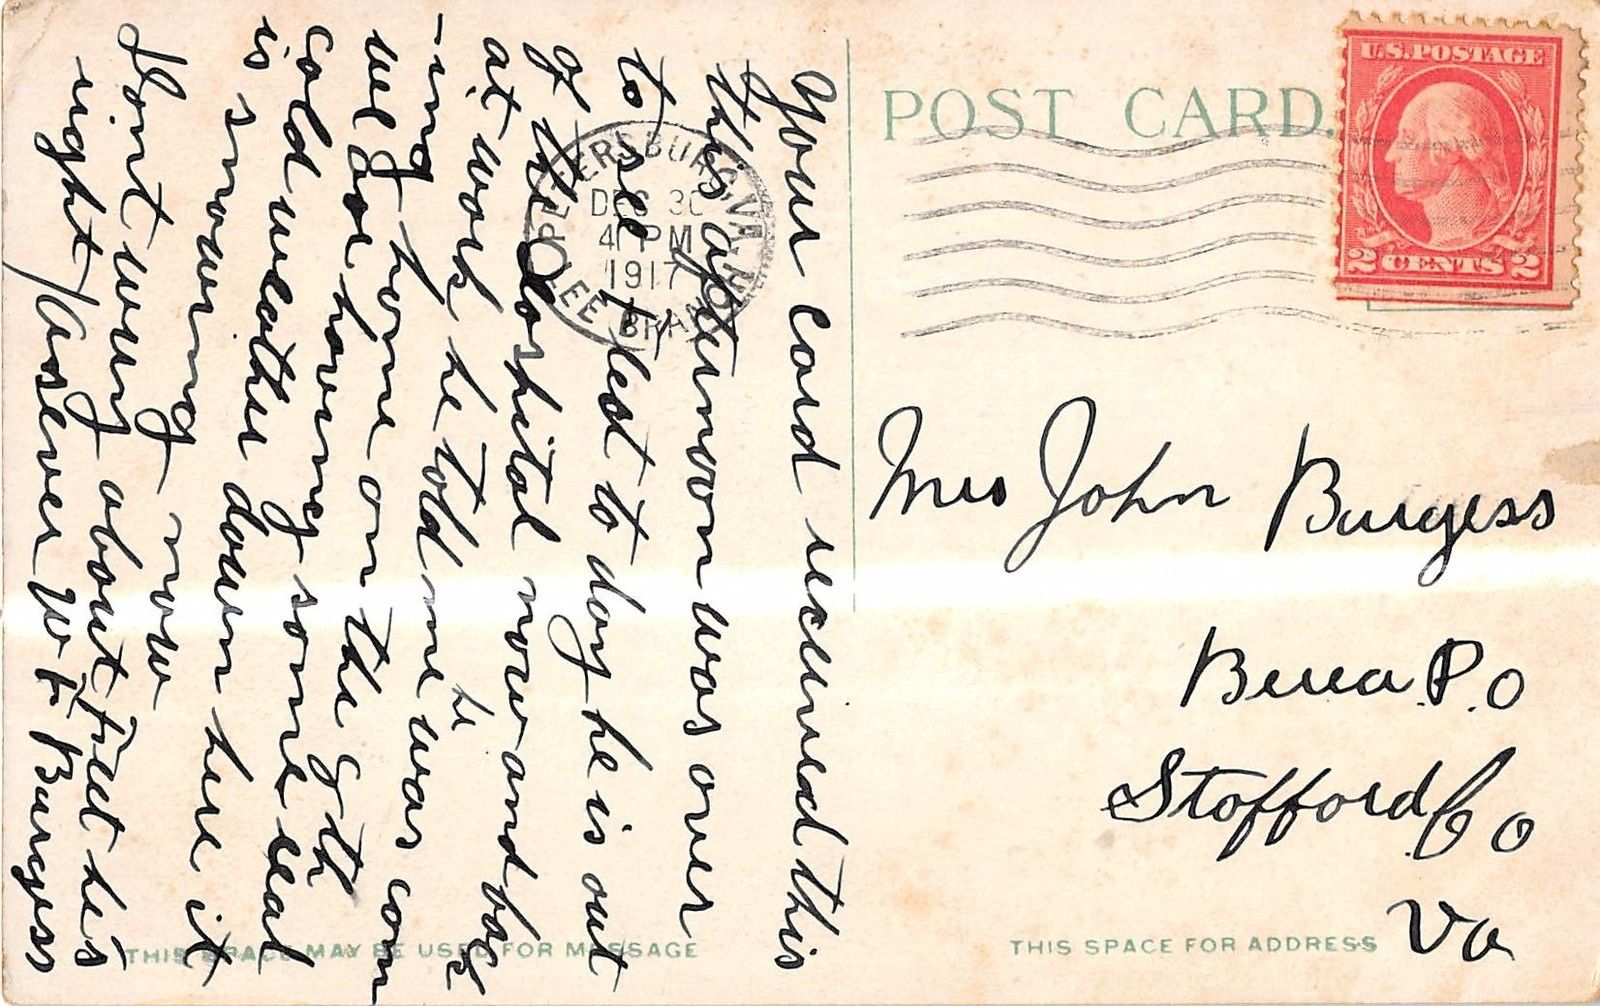 POST CARD.
U.S. POSTAGE
2 CENTS 2
PETERSBURG, VA.
DEC 30
4 PM
1917
LEE BRANCH
Your card received this
this afternoon was over
to see Fled to day he is out
of the Hospital now and back
at work he told me he was com
-ing home on the 9th
we for having some real
cold weather down here it
is snowing now
Dont wory about Fled he's
right / as ever W F Burgess
Mrs John Burgess
Berea P.O
Stofford Co
Va
THIS SPACE MAY BE USED FOR MESSAGE
THIS SPACE FOR ADDRESS